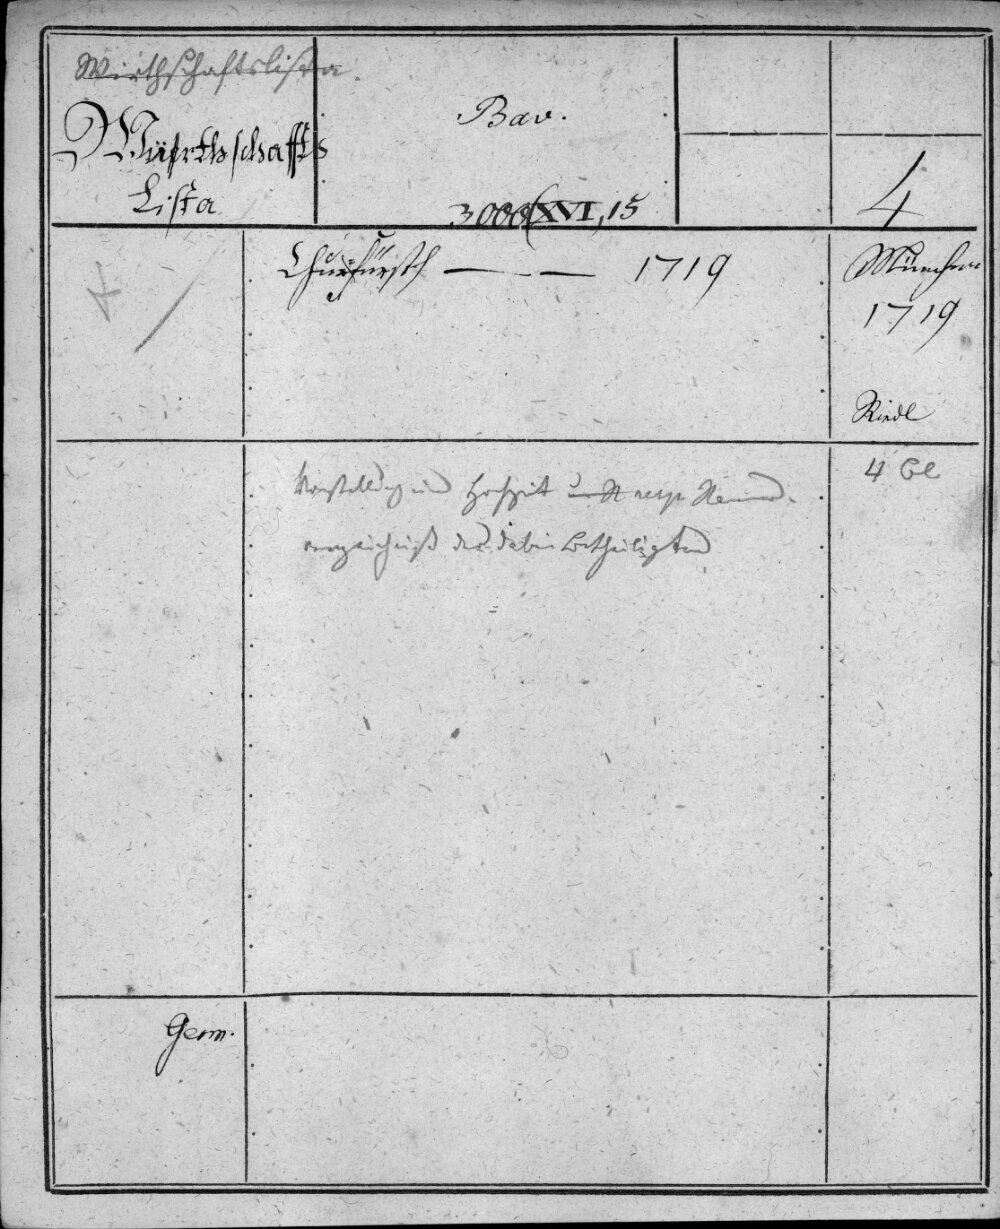 Wirthschaftslista.
Würthschaffts
Lista
Bav.
3000/XVI,15
4
Churfürstl — — 1719
München
1719
Riedl
4 Bl
Vorstellung Hochzeit
verzeichniß der dabei betheiligten
Germ.